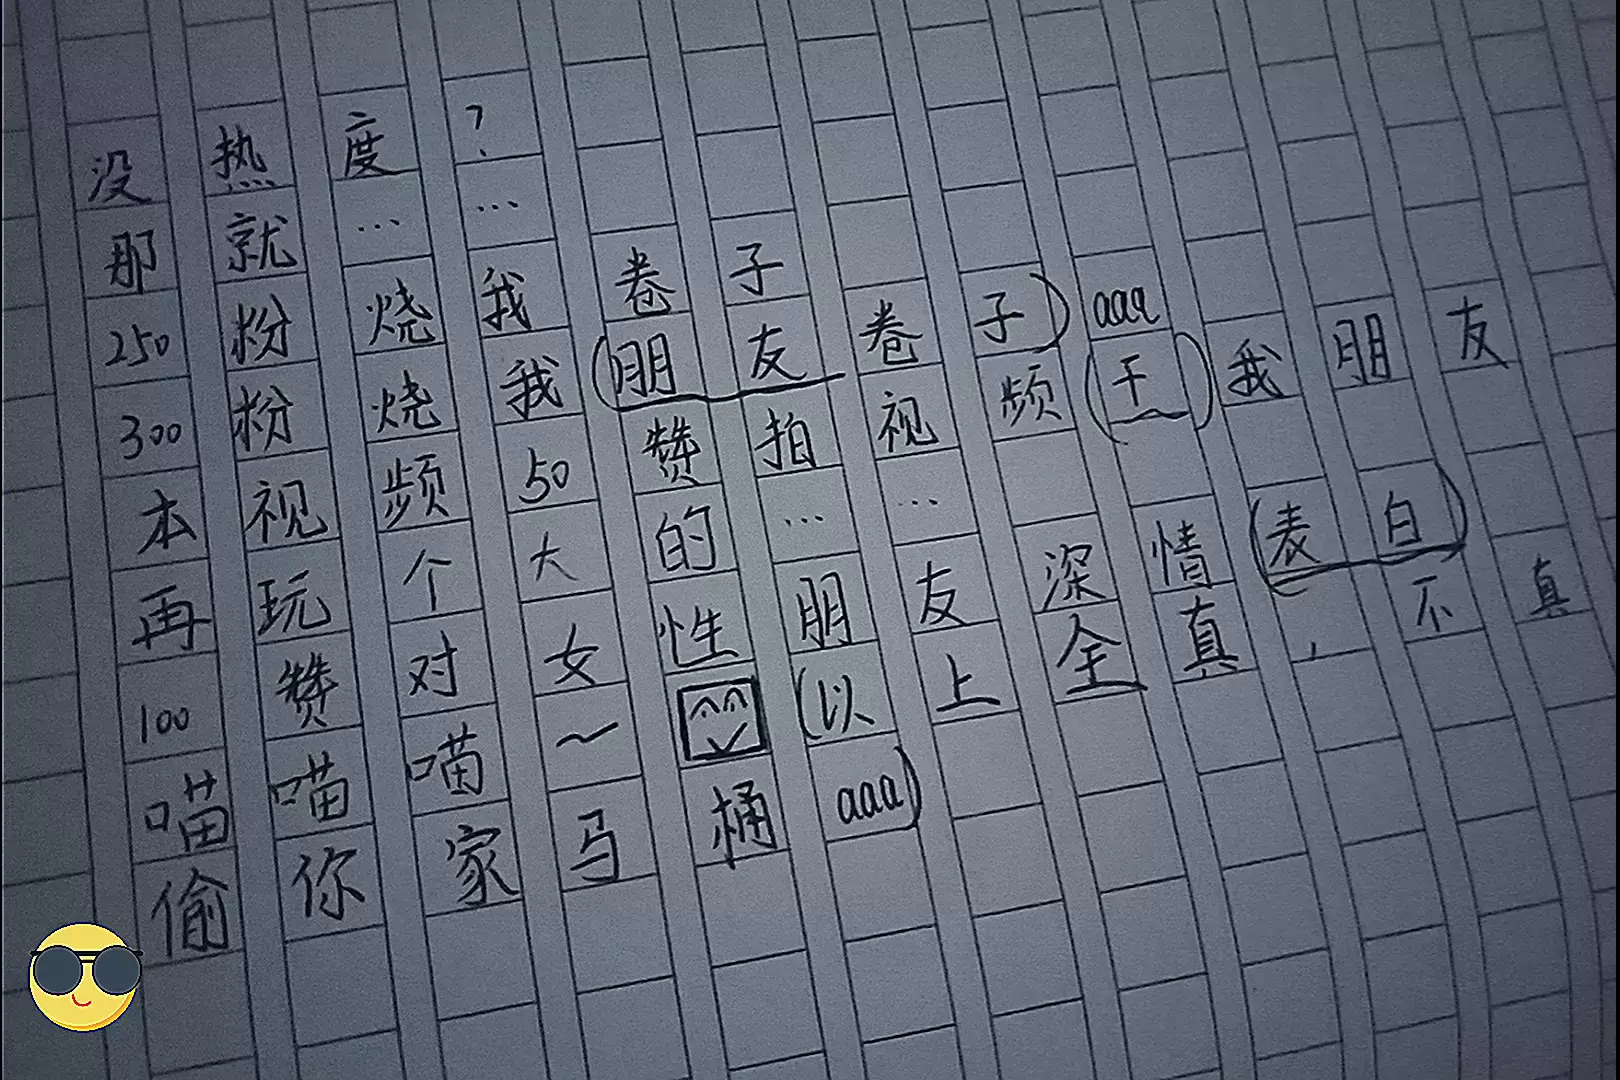 没热度?
那就……
250粉烧我卷子
300粉烧我(朋友卷子)aaa
本视频50赞拍视频(干)我朋友
再玩个大的……
100赞对女性朋友深情(表白)
喵喵喵~(以上全真,不真
偷你家马桶aaa)